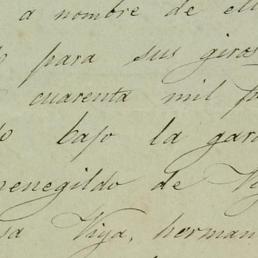 a nombre de ell
para sus giros
cuarenta mil p
bajo la gara
menegildo de Vi
sa Viya, herman